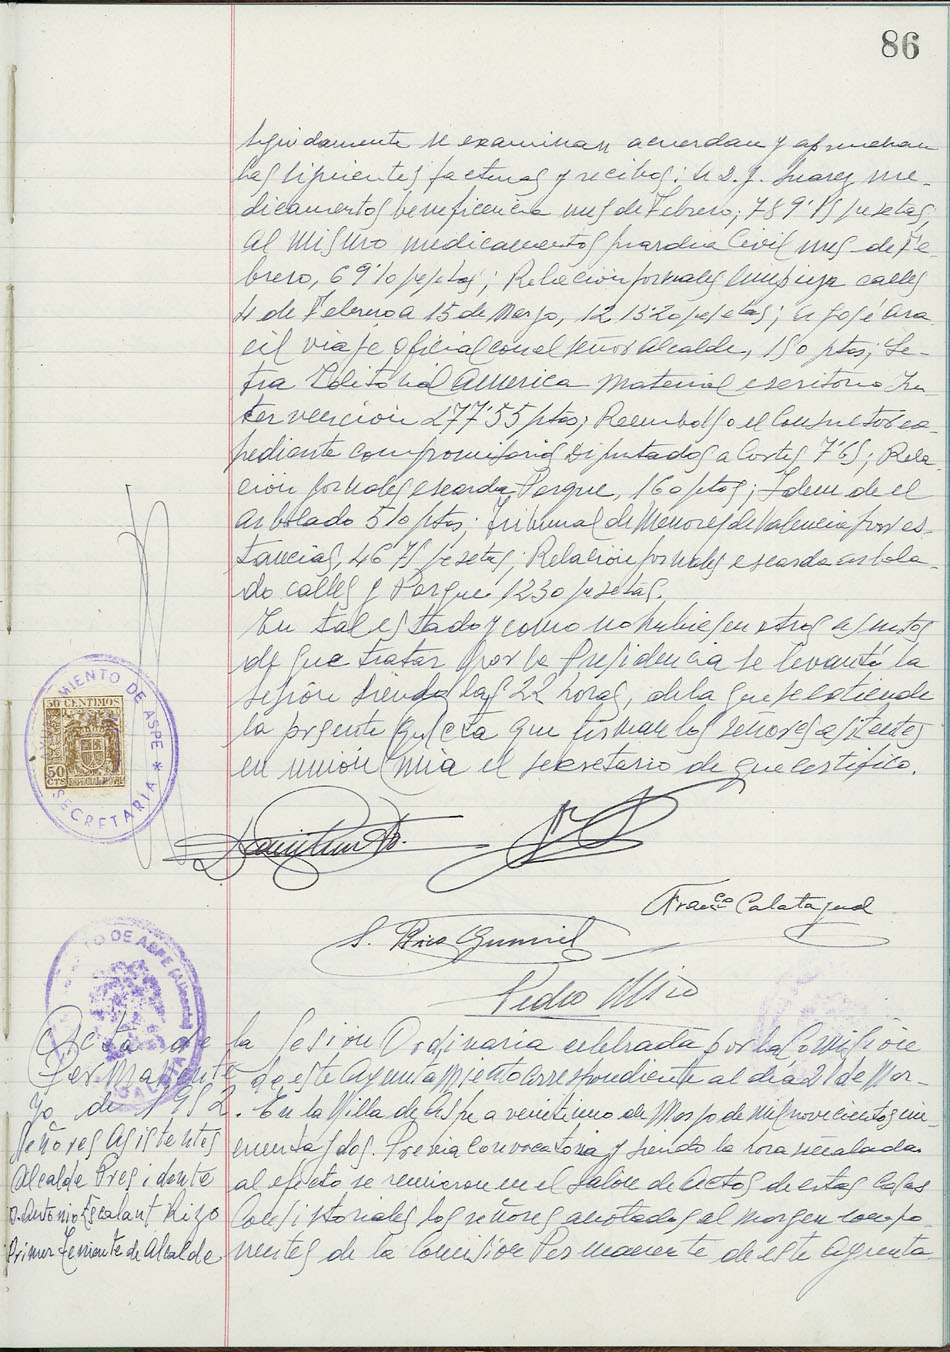 86
Seguidamente se examinan acuerdan y aprueban
las siguientes facturas y recibos: a D. J. Suarez me-
dicamentos beneficencia mes de Febrero, 789'15 pesetas,
al mismo medicamentos guardia Civil mes de Fe-
brero, 69'10 pesetas; Relación jornales limpieza calles
4 de Febrero a 15 de Marzo, 12 1320 pesetas; a José Ara-
cil viaje oficial con el señor Alcalde, 150 ptas; Le-
tra Editorial America material escritorio In-
tervencion 277'55 ptas; Reembolso el Consultor ex-
pediente compromisarios Diputados a Cortes 7'65; Rela-
ción jornales escarda Parque, 160 ptas; Idem de el
arbolado 510 ptas; Tribunal de Menores de Valencia por es-
tancias, 46'75 pesetas; Relación jornales escarda arbola-
do calles y Parque 1230 pesetas.
En tal estado y como no hubiesen otros asuntos
de que tratar por la Presidencia se levantó la
sesión siendo las 22 horas, de la que se extiende
la presente acta que firman los señores asistentes
en unión mia el secretario de que certifico.
AYUNTAMIENTO DE ASPE * SECRETARIA
50 CENTIMOS
50 CTS
ESPECIAL MOVIL
Franco Calatayud
S. Rico
Pedro Miro
AYUNTAMIENTO DE ASPE (Alicante) ALCALDIA
Acta de la Sesion Ordinaria celebrada por la Comisión
Permanente de este Ayuntamiento correspondiente al dia 21 de Mar-
zo de 1952. En la Villa de Aspe a veintiuno de Marzo de mil novecientos cin-
cuenta y dos. Previa convocatoria y siendo la hora señalada
al efecto se reunieron en el Salón de Actos de estas Casas
Consistoriales los señores anotados al margen compo-
nentes de la Comision Permanente de este Ayunta
Señores Asistentes
Alcalde Presidente
D. Antonio Escalant Rizo
Primer Teniente de Alcalde